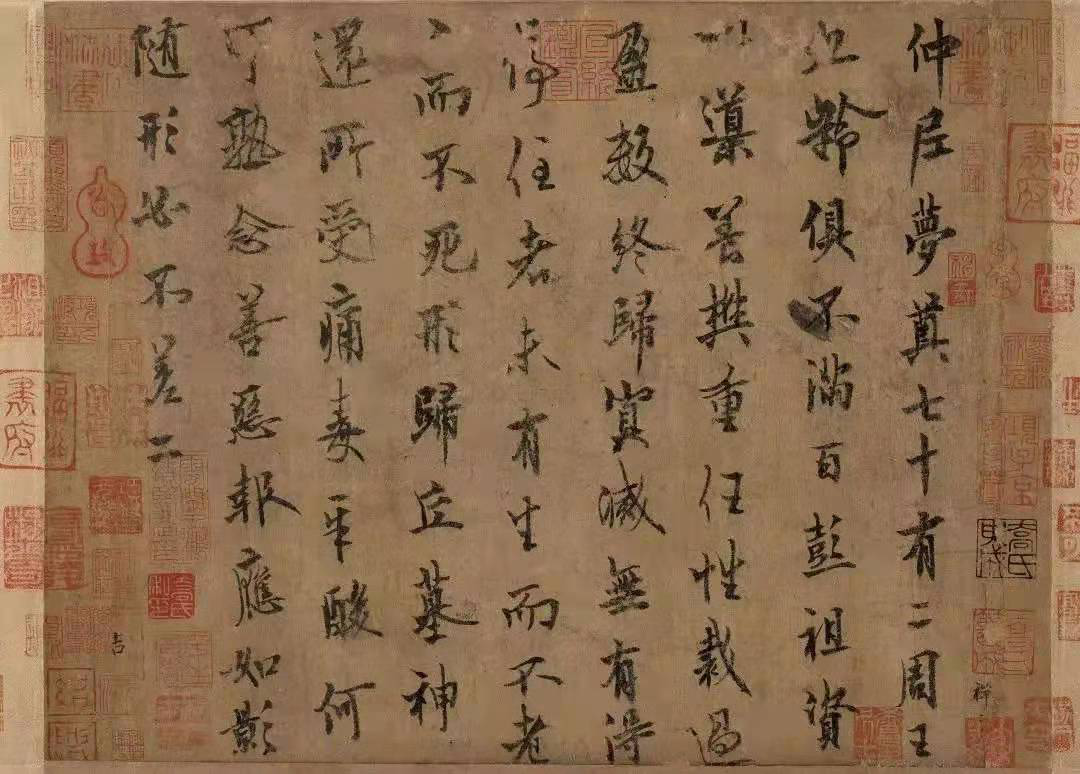 仲尼夢奠七十有二周王
九齡俱不滿百彭祖資
以導善樊重任性裁過
盈數終歸冥滅無有得
停住者未有生而不老
〻而不死形歸丘墓神
還所受痛毒辛酸何
可熟念善惡報應如影
隨形必不差二